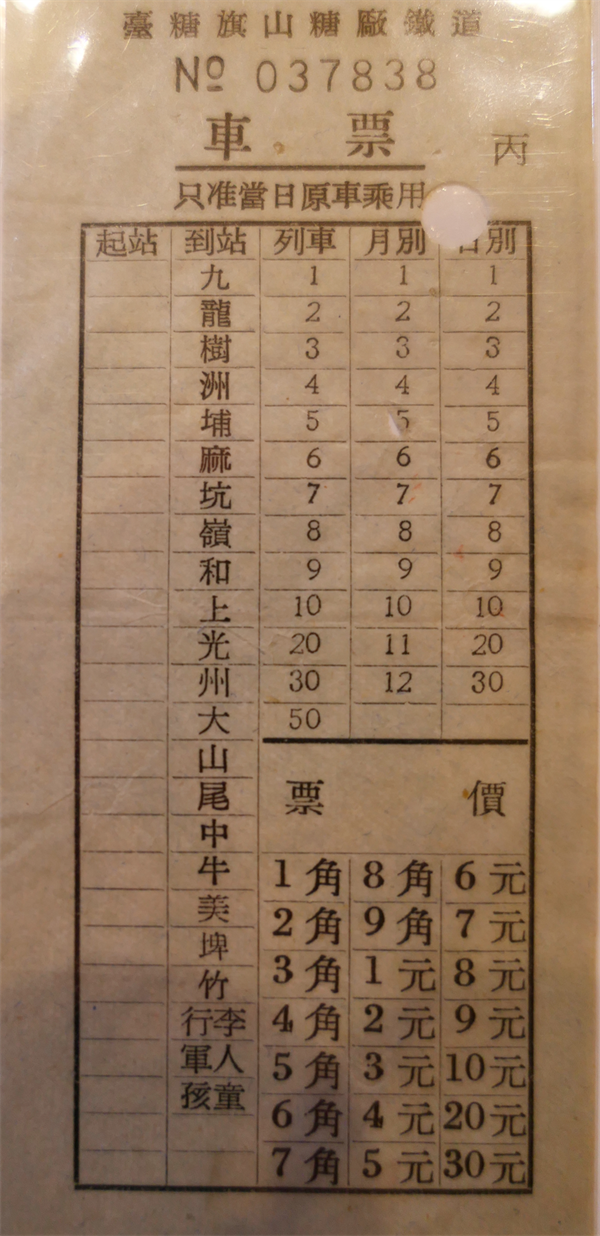 臺糖旗山糖廠鐵道
No 037838
車票 丙
只准當日原車乘用
起站 到站 列車 月別 日別
九 1 1 1
龍 2 2 2
樹 3 3 3
洲 4 4 4
埔 5 5 5
麻 6 6 6
坑 7 7 7
嶺 8 8 8
和 9 9 9
上 10 10 10
光 20 11 20
州 30 12 30
大 50
山
尾 票價
中
牛 1角 8角 6元
美 2角 9角 7元
埤
竹 3角 1元 8元
行李 4角 2元 9元
軍人 5角 3元 10元
孩童 6角 4元 20元
7角 5元 30元